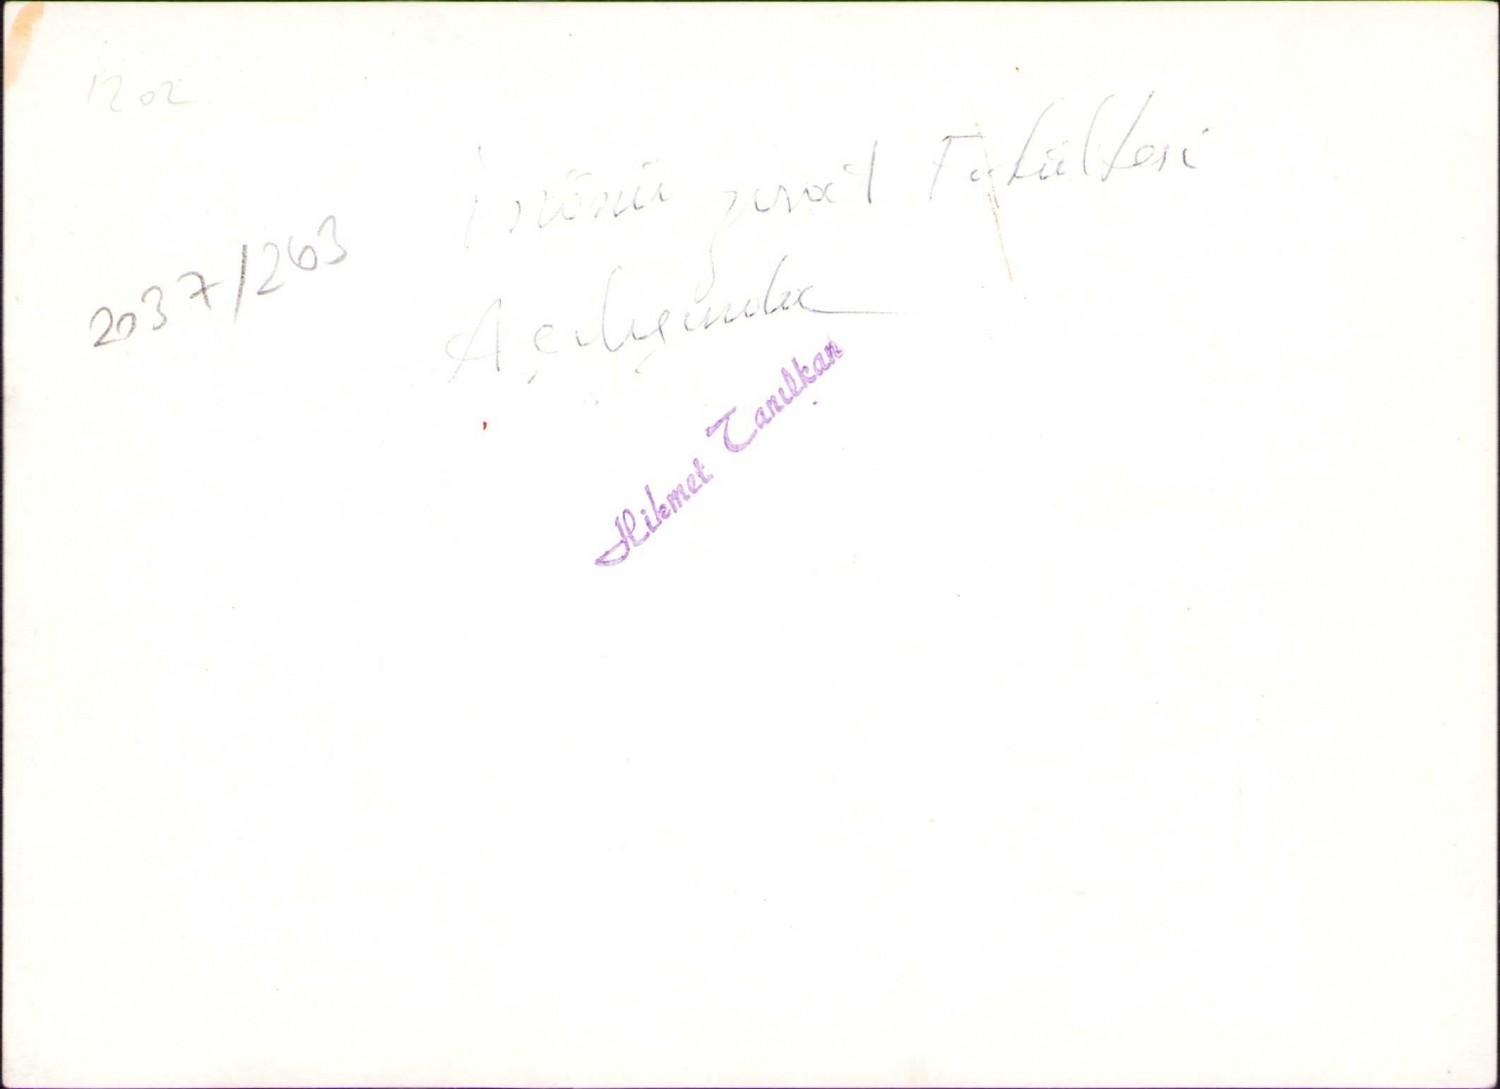 1202
İnönü ziraat Fakültesi
2037/263
Açılışında
Hikmet Tanılkan